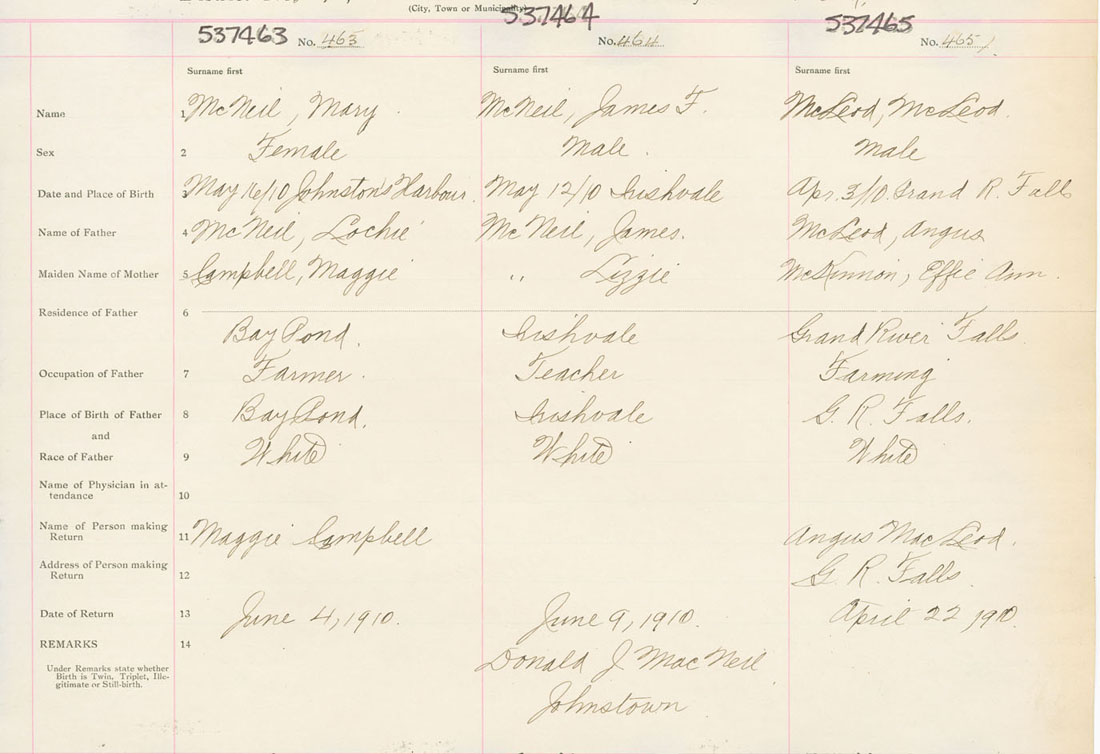 (City, Town or Municipality)
537463 No. 463
537464 No. 464
537465 No. 465
Surname first Surname first Surname first
Name 1 McNeil, Mary McNeil, James F. McLeod, McLeod.
Sex 2 Female Male. Male
Date and Place of Birth 3 May 16/10 Johnston's Harbour. May 12/10 Irishvale Apr. 3/10. Grand R. Fall
Name of Father 4 McNeil, Lochie McNeil, James. McLeod, Angus
Maiden Name of Mother 5 Campbell, Maggie " Lizzie McKinnon, Effie Ann.
Residence of Father 6
Bay Pond. Irishvale Grand River Falls
Occupation of Father 7 Farmer. Teacher Farming
Place of Birth of Father 8 Bay Pond. Irishvale G. R. Falls.
and
Race of Father 9 White White White
Name of Physician in at-
tendance 10
Name of Person making
Return 11 Maggie Campbell Angus MacLeod.
Address of Person making
Return 12 G. R. Falls.
Date of Return 13 June 4, 1910. June 9, 1910. April 22 1910.
REMARKS 14
Donald J MacNeil
Johnstown
Under Remarks state whether
Birth is Twin, Triplet, Ille-
gitimate or Still-birth.